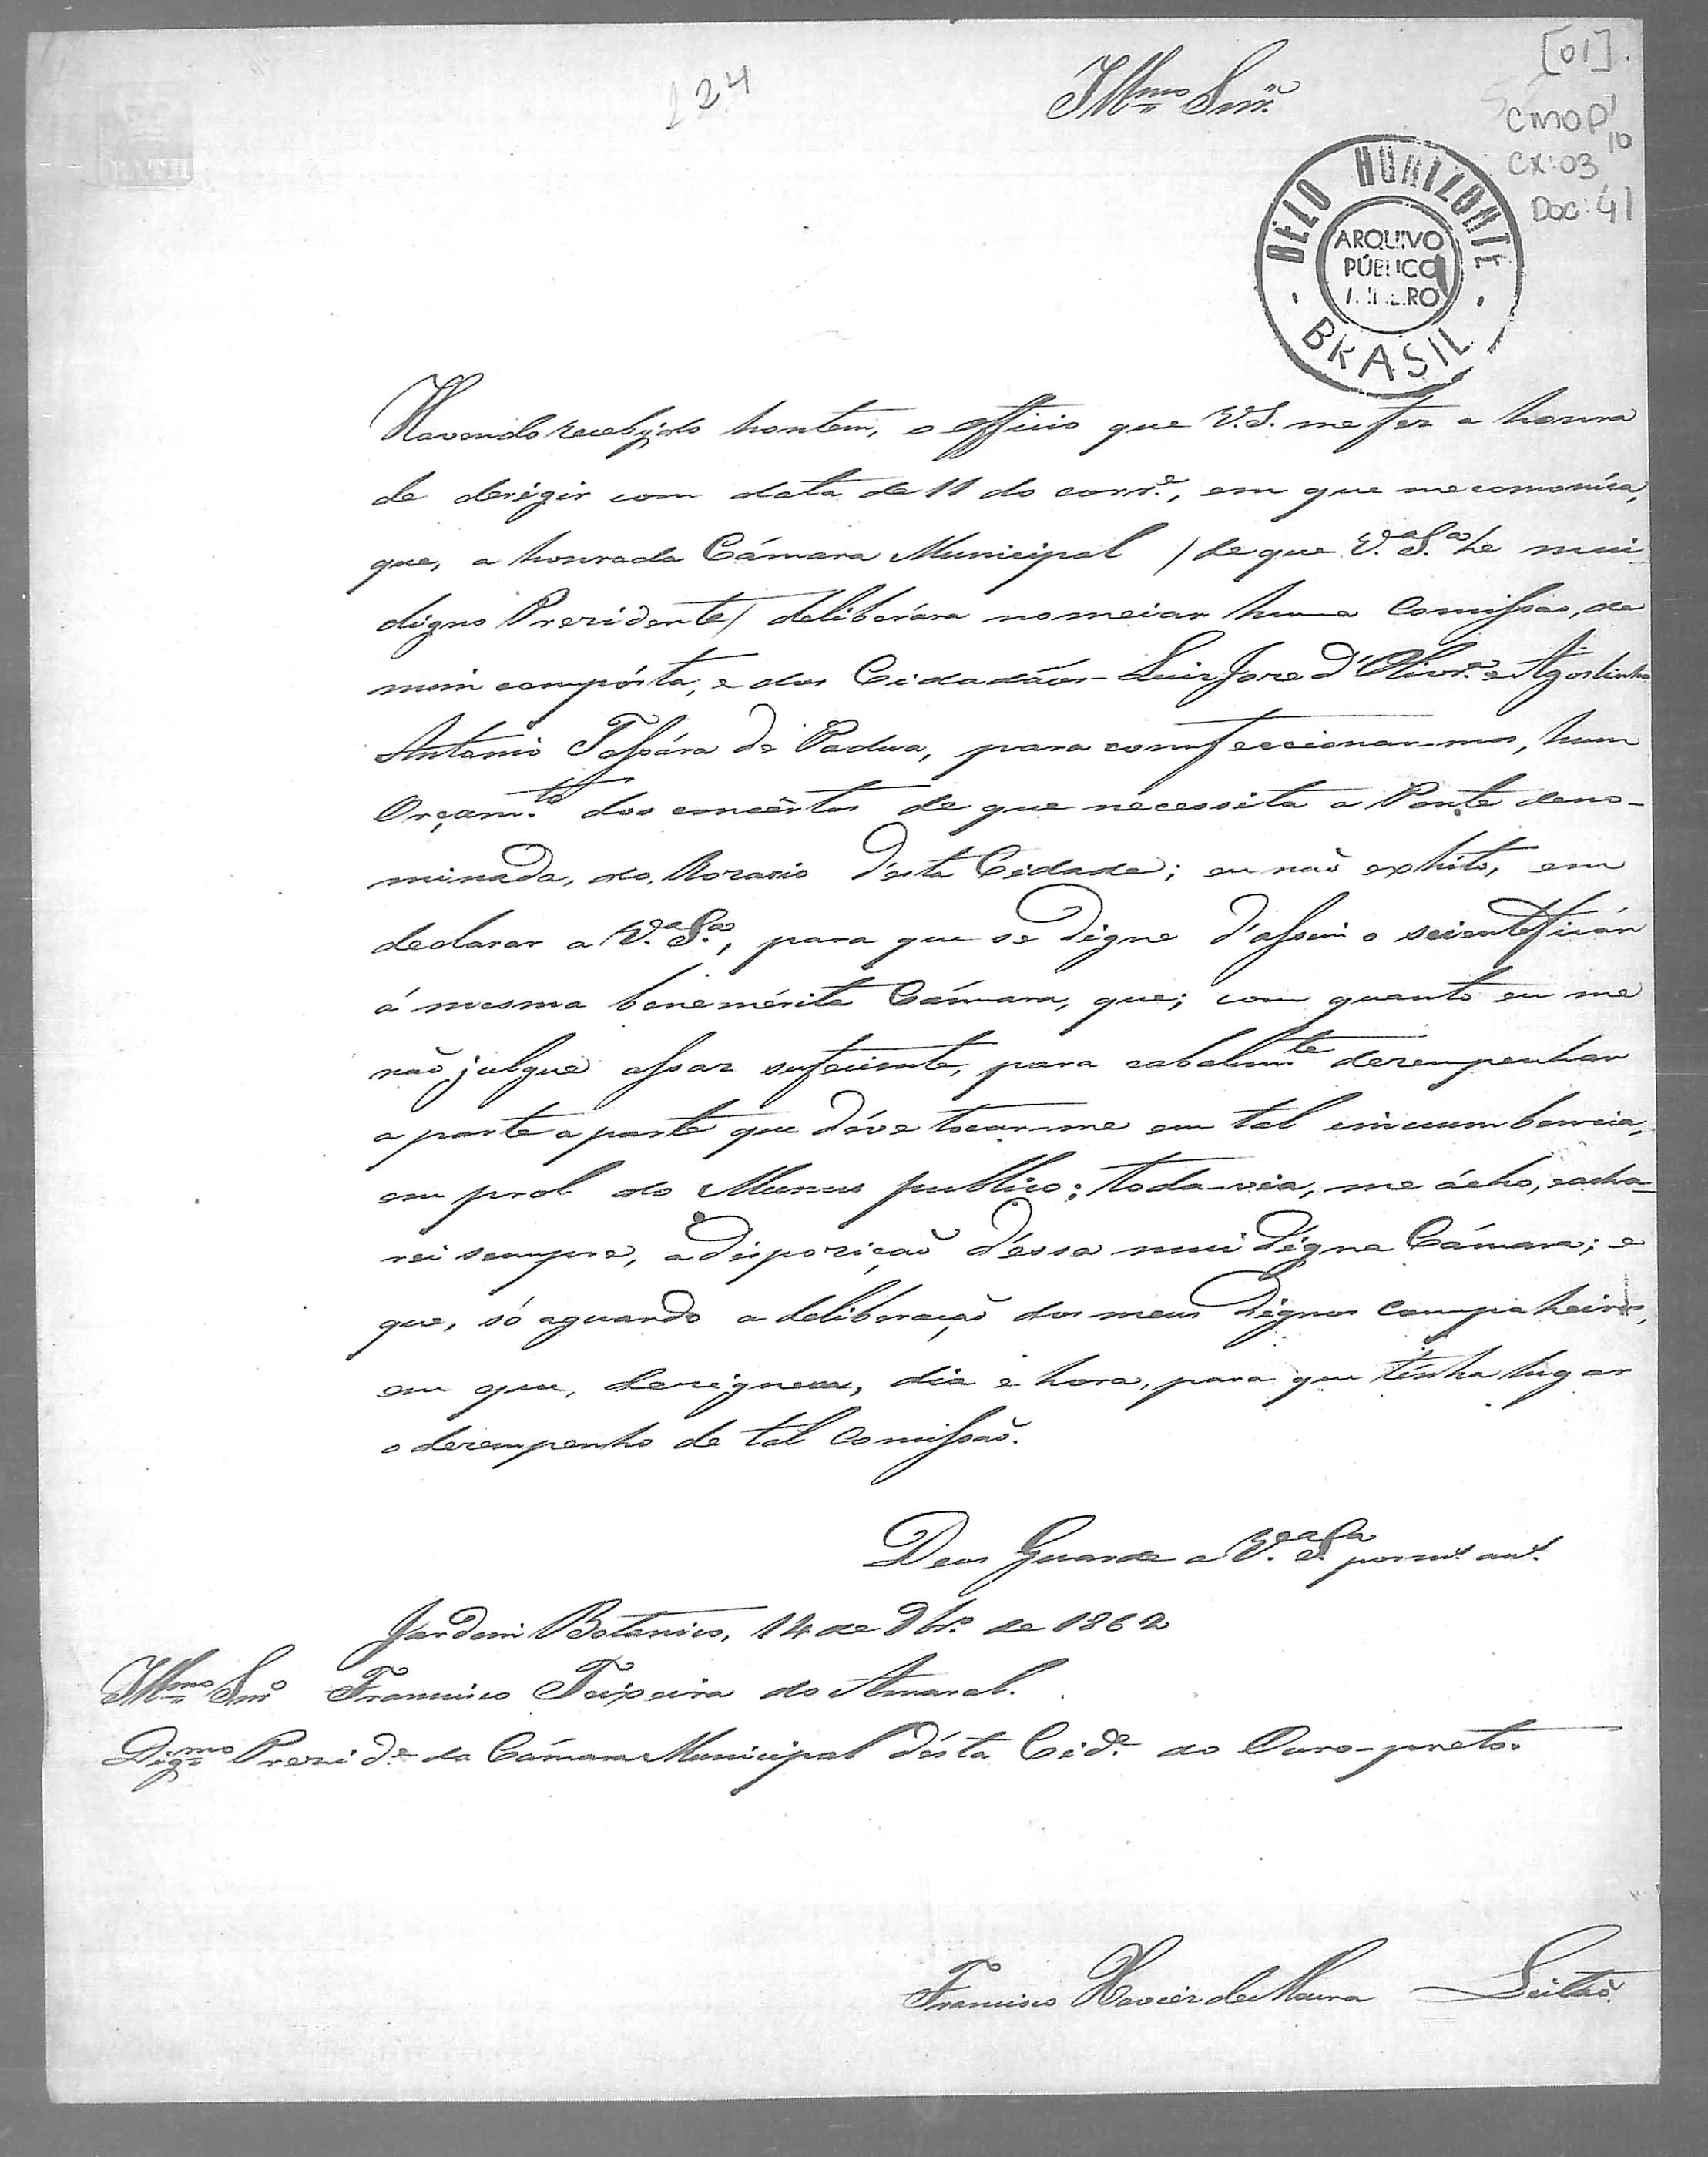 [01].
124
Illmo Snr.
CMOP 10
CX: 03
Doc: 41
BELO HORIZONTE
ARQUIVO
PÚBLICO
MINEIRO
BRASIL
Havendo recebido hontem, o officio que V.S. me fez a honra
de derigir com data de 11 do corre., em que me comoníca,
que, a honrada Cámara Municipal /de que V.ª S.ª he mui
digno Prezidente/ deliberára nomeiar huma Comissao, de
mim compósta, e dos Cidadãos - Luiz Joze d'Olivr.ª e Agostinho
Antonio Tassára de Padua, para comfeccionar-mos, hum
Orçam.to dos concêrtos de que necessita a Ponte deno-
minada, do Rozario d'esta Cidade; eu não exhito, em
declarar a V.ª S.ª, para que se digne d'assim o scientificár
á mesma benemérita Cámara, que; com quanto eu me
não julgue assaz suficiente, para cabalm.te dezempenhar
a parte a parte que déve tocar-me em tal imcumbencia,
em prol do Munus publico; toda-via, me ácho, e acha-
rei sempre, a dispozição d'essa mui dígna Cámara; e
que, só aguardo a deliberação dos meus dignos companheiros,
em que, dezignem, dia e hora, para que tenha lugar
o dezempenho de tal Comissão.
Deos Guarde a V.ª S.ª por m.s an.s
Jardim Botanico, 14 de 9br.º de 1862
Illmo Snr Francisco Teixeira do Amaral.
Dig.mo Prezid.e da Cámara Municipal désta Cid.e do Ouro-preto.
Francisco Xavier de Moura Leitão